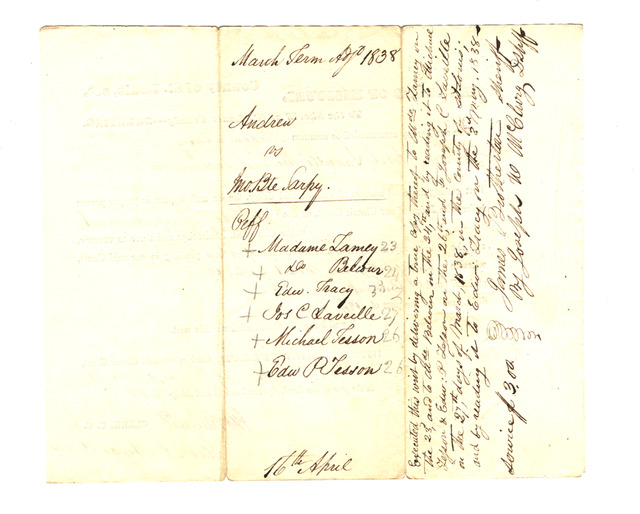 March Term Adj'd 1838
Andrew
vs
Jno Bte Sarpy.
Peff
+ Madame Lamey 23
+ Do Belcour 24
+ Edw. Tracy 3d
+ Jos C Laveille 27
+ Michael Tesson 26
+ Edw P Tesson 26
16th April
Executed this writ by delivering a true copy thereof to Mde Lamey on
the 23, and to Mde Belcour on the 24, and by reading it to Michael
Tesson & Edw. P. Tesson on the 26th and to Joseph C Laveille
on the 27th days of March 1838, in the County of St Louis;
and by reading it to Edw. Tracy on the 3d May, 1838
James Brotherton Sheriff
By Joseph W McClurg D. Shff
Service $3.00